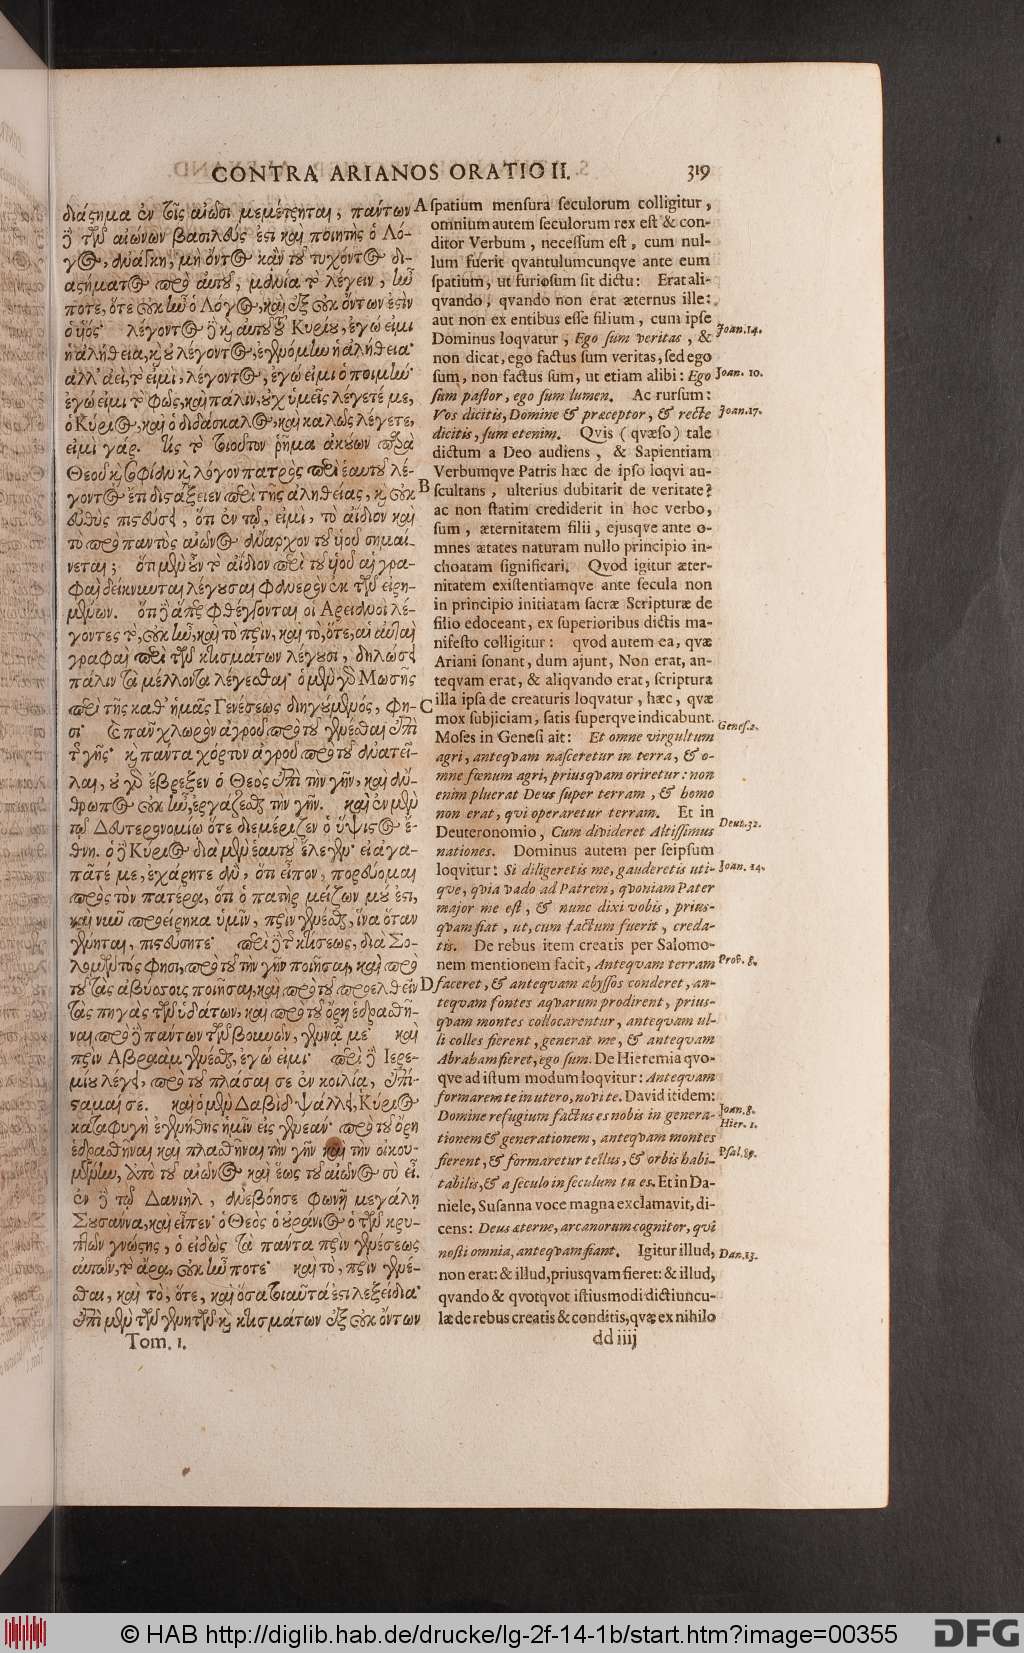 CONTRA ARIANOS ORATIO II. 319
διάστημα ἐν τοῖς αἰῶσι μεμέτρηται, πάντων
δὲ τῶν αἰώνων βασιλεύς ἐστι καὶ ποιητὴς ὁ Λό-
γος, ἀνάγκη, μὴ ὄντος κἂν τοῦ τυχόντος δι-
αστήματος πρὸ αὐτοῦ, μανία τὸ λέγειν, ἦν
ποτε, ὅτε οὐκ ἦν ὁ Λόγος, καὶ ἐξ οὐκ ὄντων ἐστὶν
ὁ υἱός· λέγοντος δὲ καὶ αὐτοῦ τοῦ Κυρίου, ἐγώ εἰμι
ἡ ἀλήθεια, καὶ οὐ λέγοντος, ἐγενόμην ἡ ἀλήθεια·
ἀλλ' ἀεὶ, τὸ εἰμὶ, λέγοντος, ἐγώ εἰμι ὁ ποιμήν·
ἐγώ εἰμι τὸ φῶς, καὶ πάλιν, οὐχ ὑμεῖς λέγετέ με,
ὁ Κύριος, καὶ ὁ διδάσκαλος, καὶ καλῶς λέγετε,
εἰμὶ γάρ. τίς τὸ τοιοῦτον ῥῆμα ἀκούων παρὰ
Θεοῦ καὶ σοφίαν καὶ λόγον πατρὸς περὶ ἑαυτοῦ λέ-
γοντος ἔτι διστάξειεν περὶ τῆς ἀληθείας, καὶ οὐκ
εὐθὺς πιστεύσει, ὅτι ἐν τῷ, εἰμὶ, τὸ ἀΐδιον καὶ
τὸ πρὸ παντὸς αἰῶνος ἄναρχον τοῦ υἱοῦ σημαί-
νεται; ὅτι μὲν οὖν τὸ ἀΐδιον περὶ τοῦ υἱοῦ αἱ γρα-
φαὶ δείκνυνται λέγουσαι φανερὸν ἐκ τῶν εἰρη-
μένων. ὅτι δὲ ἅπερ φθέγγονται οἱ Ἀρειανοὶ λέ-
γοντες τὸ, οὐκ ἦν, καὶ τὸ πρὶν, καὶ τὸ, ὅτε, αἱ αὐταὶ
γραφαὶ περὶ τῶν κτισμάτων λέγουσι, δηλώσει
πάλιν τὰ μέλλοντα λέγεσθαι· ὁ μὲν γὰρ Μωσῆς
περὶ τῆς καθ' ἡμᾶς Γενέσεως διηγούμενος, φη-
σί· καὶ πᾶν χλωρὸν ἀγροῦ πρὸ τοῦ γενέσθαι ἐπὶ
τῆς γῆς· καὶ πάντα χόρτον ἀγροῦ πρὸ τοῦ ἀνατεῖ-
λαι, οὐ γὰρ ἔβρεξεν ὁ Θεὸς ἐπὶ τὴν γῆν, καὶ ἄν-
θρωπος οὐκ ἦν, ἐργάζεσθαι τὴν γῆν. καὶ ἐν μὲν
τῷ Δευτερονομίῳ ὅτε διεμέριζεν ὁ ὕψιστος ἔ-
θνη. ὁ δὲ Κύριος διὰ μὲν ἑαυτοῦ ἔλεγεν· εἰ ἀγα-
πᾶτέ με, ἐχάρητε ἂν, ὅτι εἶπον, πορεύομαι
πρὸς τὸν πατέρα, ὅτι ὁ πατὴρ μείζων μού ἐστι,
καὶ νῦν προείρηκα ὑμῖν, πρὶν γενέσθαι, ἵνα ὅταν
γένηται, πιστεύσητε· περὶ δὲ τῆς κτίσεως, διὰ Σο-
λομῶντός φησι, πρὸ τοῦ τὴν γῆν ποιῆσαι, καὶ πρὸ
τοῦ τὰς ἀβύσσους ποιῆσαι, καὶ πρὸ τοῦ προελθεῖν
τὰς πηγὰς τῶν ὑδάτων, καὶ πρὸ τοῦ ὄρη ἑδρασθῆ-
ναι πρὸ δὲ πάντων τῶν βουνῶν, γεννᾷ με· καὶ
πρὶν Ἀβραὰμ γενέσθαι, ἐγώ εἰμι· περὶ δὲ Ἱερε-
μίου λέγει, πρὸ τοῦ πλάσαι σε ἐν κοιλίᾳ, ἐπί-
σταμαί σε. καὶ ὁ μὲν Δαβὶδ ψάλλει, Κύριε
καταφυγὴ ἐγενήθης ἡμῖν εἰς γενεάν· πρὸ τοῦ ὄρη
ἑδρασθῆναι καὶ πλασθῆναι τὴν γῆν καὶ τὴν οἰκου-
μένην, ἀπὸ τοῦ αἰῶνος καὶ ἕως τοῦ αἰῶνος σὺ εἶ.
ἐν δὲ τῷ Δανιὴλ, ἀνεβόησε φωνῇ μεγάλῃ
Σουσάννα, καὶ εἶπεν· ὁ Θεὸς ὁ αἰώνιος ὁ τῶν κρυ-
πτῶν γνώστης, ὁ εἰδὼς τὰ πάντα πρὶν γενέσεως
αὐτῶν, τὸ ἄρα, οὐκ ἦν ποτε· καὶ τὸ, πρὶν γενέ-
σθαι, καὶ τὸ, ὅτε, καὶ ὅσα τοιαῦτά ἐστι λεξείδια·
ἐπὶ μὲν τῶν γενητῶν καὶ κτισμάτων ἐξ οὐκ ὄντων
Tom. 1.
A
B
C
D
spatium mensura seculorum colligitur,
omnium autem seculorum rex est & con-
ditor Verbum, necessum est, cum nul-
lum fuerit qvantulumcunqve ante eum
spatium, ut furiosum sit dictu: Erat ali-
qvando, qvando non erat æternus ille:
aut non ex entibus esse filium, cum ipse
Dominus loqvatur, Ego sum veritas, &
non dicat, ego factus sum veritas, sed ego
sum, non factus sum, ut etiam alibi: Ego
sum pastor, ego sum lumen. Ac rursum:
Vos dicitis, Domine & præceptor, & recte
dicitis, sum etenim. Qvis (qvæso) tale
dictum a Deo audiens, & Sapientiam
Verbumqve Patris hæc de ipso loqvi au-
scultans, ulterius dubitarit de veritate?
ac non statim crediderit in hoc verbo,
sum, æternitatem filii, ejusqve ante o-
mnes ætates naturam nullo principio in-
choatam significari. Qvod igitur æter-
nitatem existentiamqve ante secula non
in principio initiatam sacræ Scripturæ de
filio edoceant, ex superioribus dictis ma-
nifesto colligitur: qvod autem ea, qvæ
Ariani sonant, dum ajunt, Non erat, an-
teqvam erat, & aliqvando erat, scriptura
illa ipsa de creaturis loqvatur, hæc, qvæ
mox subjiciam, satis superqve indicabunt.
Moses in Genesi ait: Et omne virgultum
agri, anteqvam nasceretur in terra, & o-
mne fœnum agri, priusqvam oriretur: non
enim pluerat Deus super terram, & homo
non erat, qvi operaretur terram. Et in
Deuteronomio, Cum divideret Altissimus
nationes. Dominus autem per seipsum
loqvitur: Si diligeretis me, gauderetis uti-
qve, qvia vado ad Patrem, qvoniam Pater
major me est, & nunc dixi vobis, prius-
qvam fiat, ut, cum factum fuerit, creda-
tis. De rebus item creatis per Salomo-
nem mentionem facit, Anteqvam terram
faceret, & anteqvam abyssos conderet, an-
teqvam fontes aqvarum prodirent, prius-
qvam montes collocarentur, anteqvam ul-
li colles fierent, generat me, & anteqvam
Abraham fieret, ego sum. De Hieremia qvo-
qve ad istum modum loqvitur: Anteqvam
formarem te in utero, novi te. David itidem:
Domine refugium factus es nobis in genera-
tionem & generationem, anteqvam montes
fierent, & formaretur tellus, & orbis habi-
tabilis, & a seculo in seculum tu es. Et in Da-
niele, Susanna voce magna exclamavit, di-
cens: Deus æterne, arcanorum cognitor, qvi
nosti omnia, anteqvam fiant. Igitur illud,
non erat: & illud, priusqvam fieret: & illud,
qvando & qvotqvot istiusmodi dictiuncu-
læ de rebus creatis & conditis, qvæ ex nihilo
dd iiij
Joan. 14.
Joan. 10.
Joan. 17.
Genes. 2.
Deut. 32.
Joan. 14.
Prov. 8.
Joan. 8.
Hier. 1.
Psal. 89.
Dan. 13.
© HAB http://diglib.hab.de/drucke/lg-2f-14-1b/start.htm?image=00355
DFG